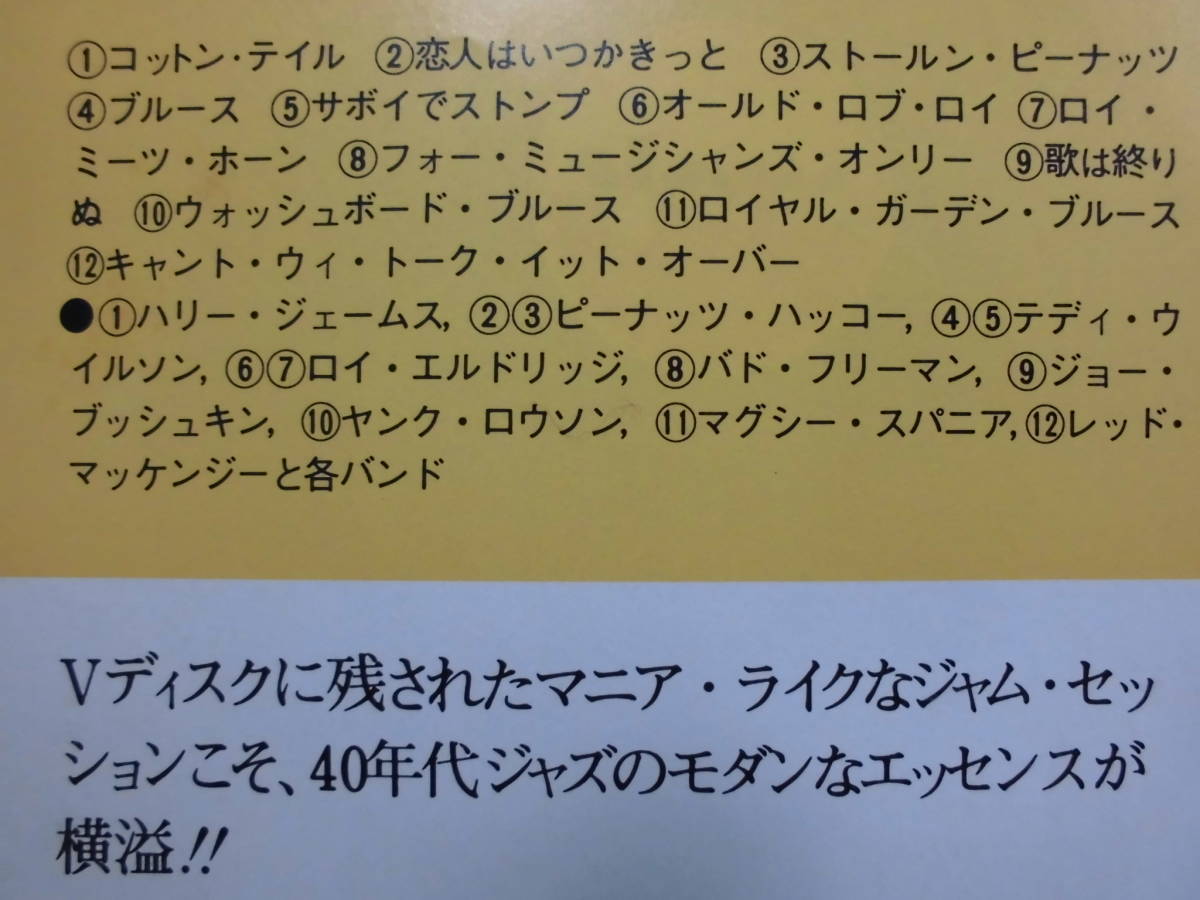 ①コットン・テイル ②恋人はいつかきっと ③ストールン・ピーナッツ
④ブルース ⑤サボイでストンプ ⑥オールド・ロブ・ロイ ⑦ロイ・
ミーツ・ホーン ⑧フォー・ミュージシャンズ・オンリー ⑨歌は終り
ぬ ⑩ウォッシュボード・ブルース ⑪ロイヤル・ガーデン・ブルース
⑫キャント・ウィ・トーク・イット・オーバー
●①ハリー・ジェームス, ②③ピーナッツ・ハッコー, ④⑤テディ・ウ
イルソン, ⑥⑦ロイ・エルドリッジ, ⑧バド・フリーマン, ⑨ジョー・
ブッシュキン, ⑩ヤンク・ロウソン, ⑪マグシー・スパニア, ⑫レッド・
マッケンジーと各バンド
Vディスクに残されたマニア・ライクなジャム・セッ
ションこそ、40年代ジャズのモダンなエッセンスが
横溢!!